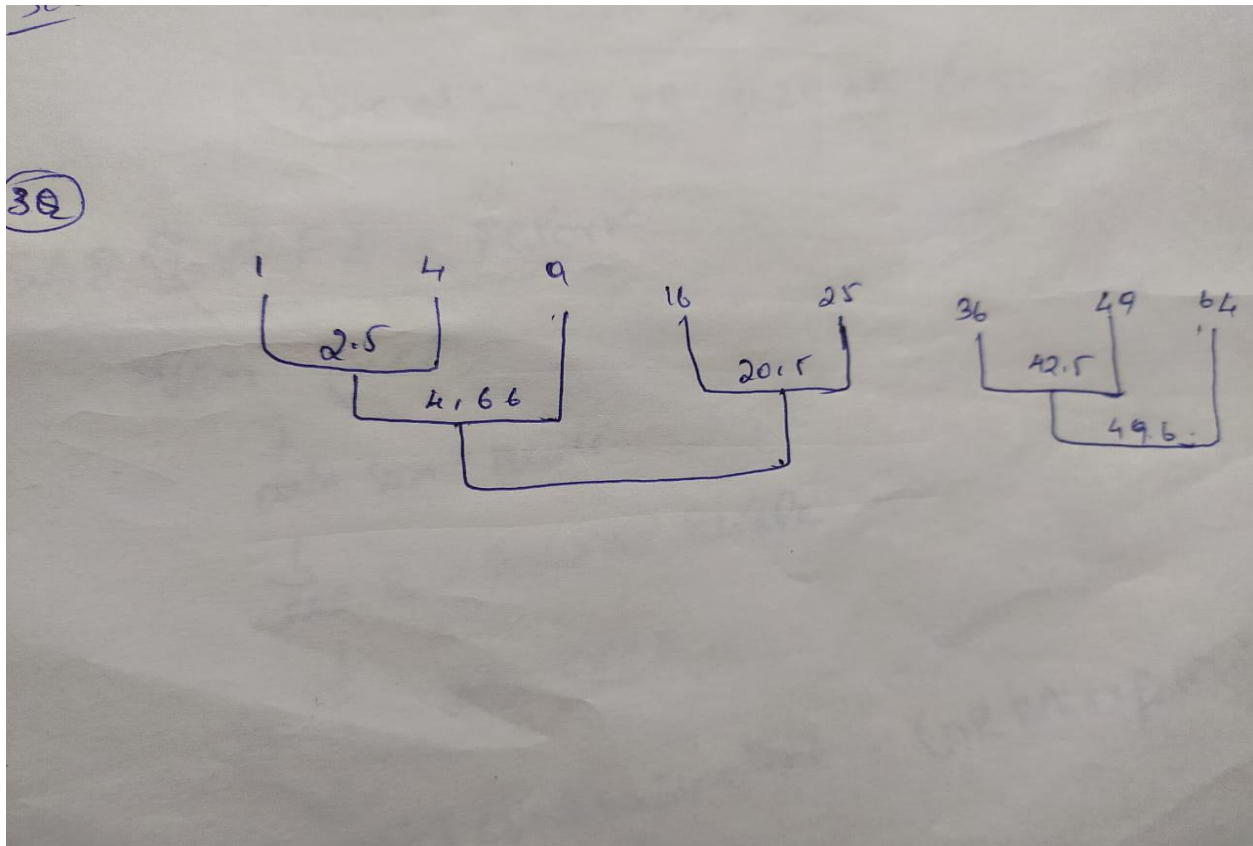 3Q
1 4 9 16 25 36 49 64
2.5 20.5 42.5
4.66 49.6